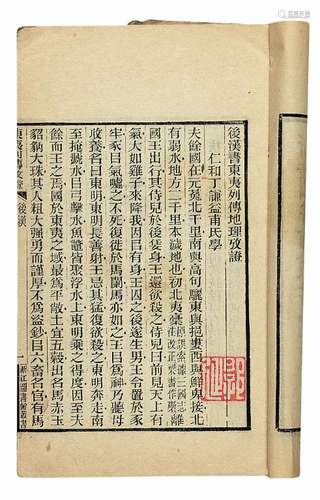 後漢書東夷列傳地理攷證
仁和丁謙益甫氏學
夫餘國在元菟北千里南與高句驪東與挹婁西與鮮卑接北
有弱水地方二千里本濊地也初北夷
國王出行其侍兒於後姙身王還欲殺之侍兒曰前見天上有
氣大如雞子來降我因以有身王囚之後遂生男王令置於豕
牢豕以口氣噓之不死復徙於馬蘭馬亦如之王以爲神乃聽母
收養名曰東明東明長而善射王忌其猛復欲殺之東明奔走南
至掩㴲水以弓擊水魚鼈皆聚浮水上東明乘之得度因至夫
餘而王之焉國於東夷之域最爲平敞土宜五穀出名馬赤玉
貂豽大珠其人粗大强勇而謹厚不爲盜鈔以六畜名官有馬
東夷列傳攷證
後漢
一
浙江圖書館叢書